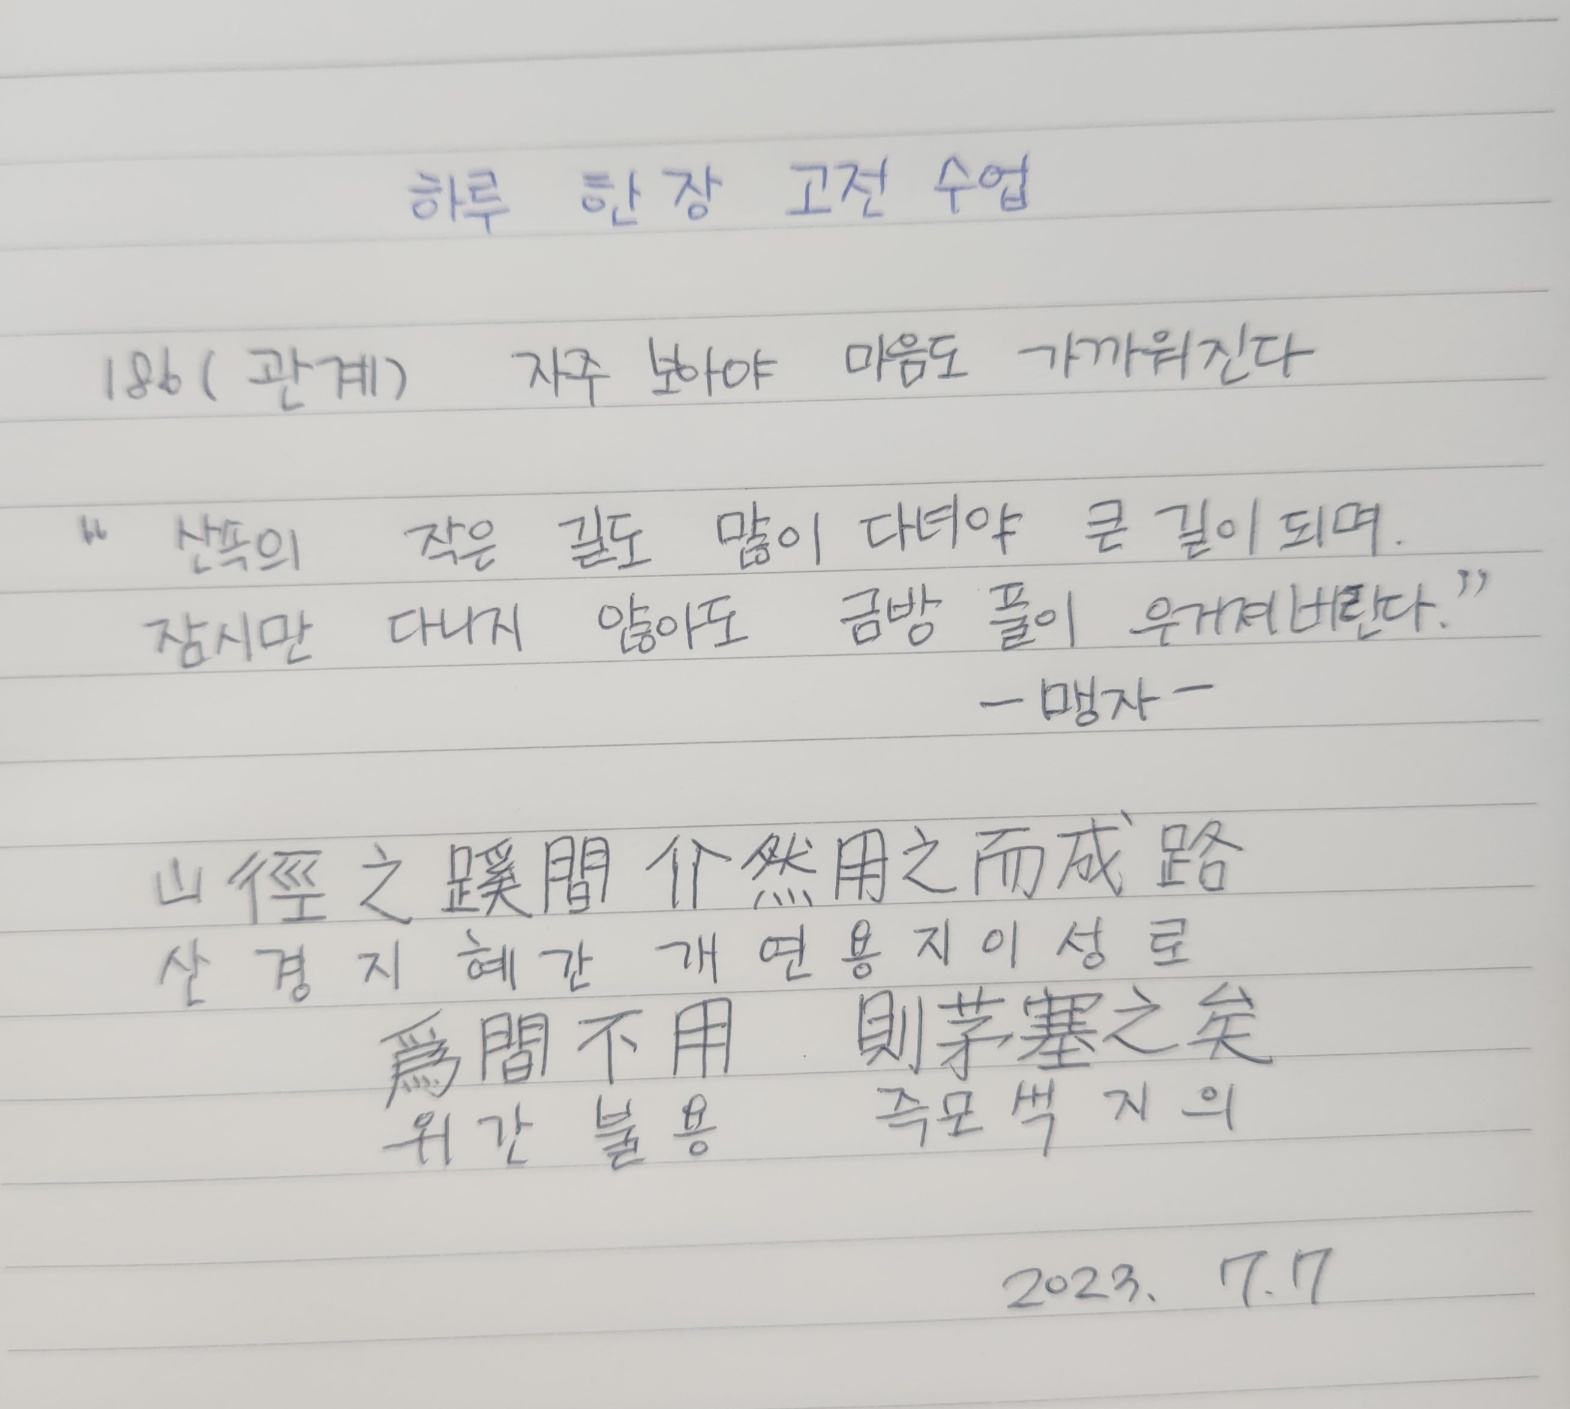 하루 한장 고전 수업
186(관계) 자주 보아야 마음도 가까워진다
“ 산쪽의 작은 길도 많이 다녀야 큰 길이 되며.
잠시만 다니지 않아도 금방 풀이 우거져버린다.”
- 맹자 -
山徑之蹊間 介然用之而成路
산 경 지 혜 간 개 연 용 지 이 성 로
爲間不用 則茅塞之矣
위 간 불 용 즉 모 색 지 의
2023. 7.7